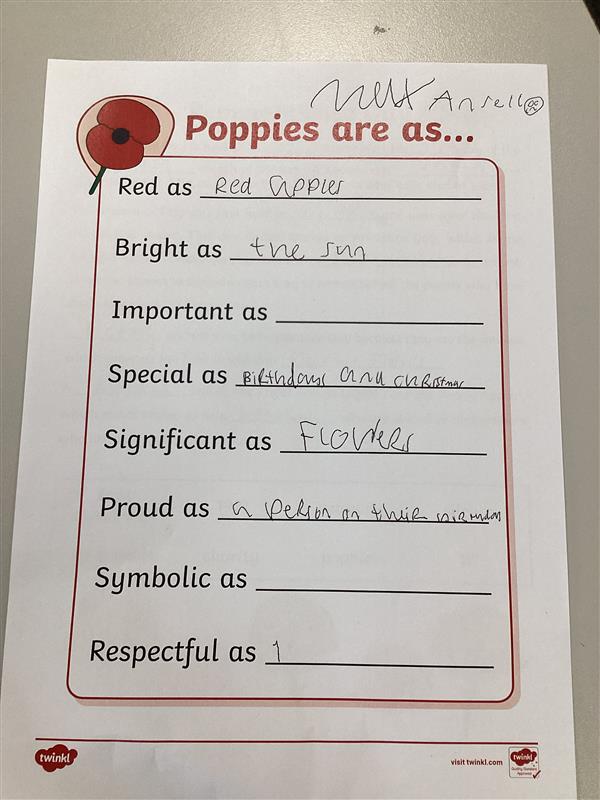 Ansell
Poppies are as...
Red as Red Apples
Bright as the sun
Important as
Special as Birthdays and christmas
Significant as Flowers
Proud as a person on their birthday
Symbolic as
Respectful as 1
twinkl
visit twinkl.com
twinkl
Quality Standard
Approved